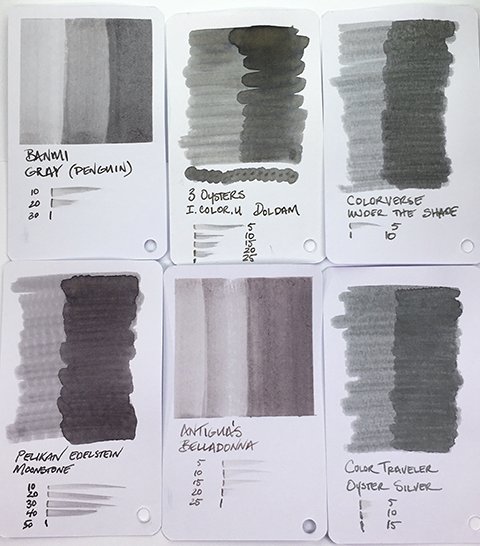 BANMI
GRAY (PENGUIN)
10
20
30
3 OYSTERS
I.COLOR.U DOLDAM
5
10
15
20
25
COLORVERSE
UNDER THE SHADE
5
10
PELIKAN EDELSTEIN
MOONSTONE
10
20
30
40
50
ANTIGUA'S
BELLADONNA
5
10
15
20
25
COLOR TRAVELER
OYSTER SILVER
5
10
15